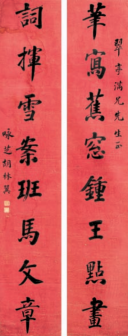 翠亭满兄先生正
筆寫蕉窓鍾王點畫
詞揮雪案班馬文章
詠芝胡林翼